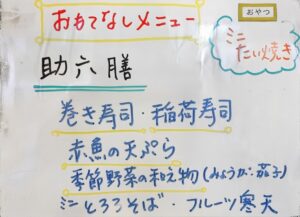 おもてなしメニュー
おやつ
ミニ
たい焼き
助六膳
巻き寿司・稲荷寿司
赤魚の天ぷら
季節野菜の和え物(みょうが・茄子)
ミニとろろそば・フルーツ寒天